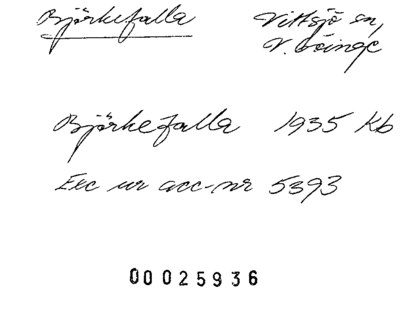 Björkefalla Vittsjö sn,
V. Göinge
Björkefalla 1935 Kb
Exc ur acc-nr 5393
00025936